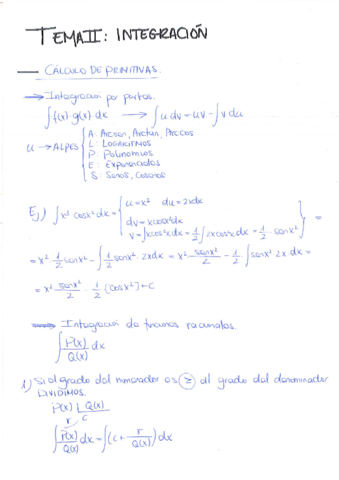 TEMA II: INTEGRACIÓN
CÁLCULO DE PRIMITIVAS.
→ Integracion por partes.
∫f(x) g(x)·dx → ∫u dv = uv - ∫v du
u → ALPES { A: Arcsen, Arctan, Arccos
L: Logaritmos
P: Polinomios
E: Exponenciales
S: Senos, Cosenos
Ej) ∫x³ cosx² dx = { u = x² du = 2xdx
dv = xcosx²dx
v = ∫xcosx²dx = 1/2 ∫2xcosx²dx = 1/2 · senx² } =
= x² · 1/2 senx² - ∫ 1/2 senx² · 2xdx = x² senx²/2 - 1/2 · ∫senx² 2x dx =
= x² senx²/2 - 1/2 (-cosx²) + C
→ Integracion de funciones racionales
∫ P(x)/Q(x) dx
1) Si el grado del numerador es ≥ al grado del denominador
DIVIDIMOS.
P(x) | Q(x)
r C
∫ P(x)/Q(x) dx = ∫(C + r/Q(x)) dx